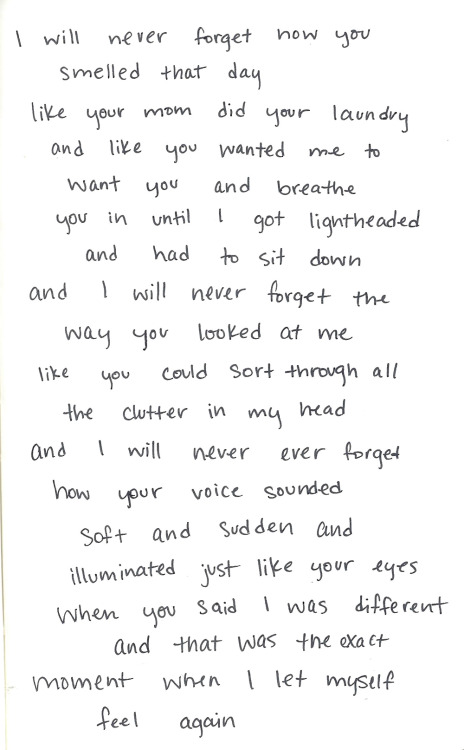 I will never forget how you
smelled that day
like your mom did your laundry
and like you wanted me to
want you and breathe
you in until I got lightheaded
and had to sit down
and I will never forget the
way you looked at me
like you could sort through all
the clutter in my head
and I will never ever forget
how your voice sounded
soft and sudden and
illuminated just like your eyes
when you said I was different
and that was the exact
moment when I let myself
feel again